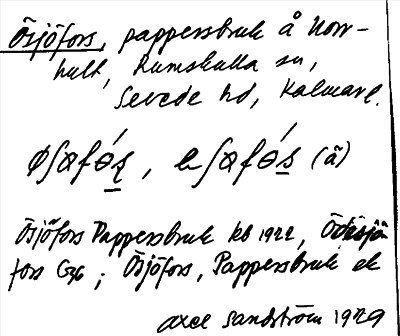 Ösjöfors, pappersbruk å Norr-
hult, Rumskulla sn,
Sevede hd, Kalmar l.
(ä)
Ösjöfors Pappersbruk kb 1922, Ödesjö
fors G36; Ösjöfors, Pappersbruk ek
Axel Sandström 1929